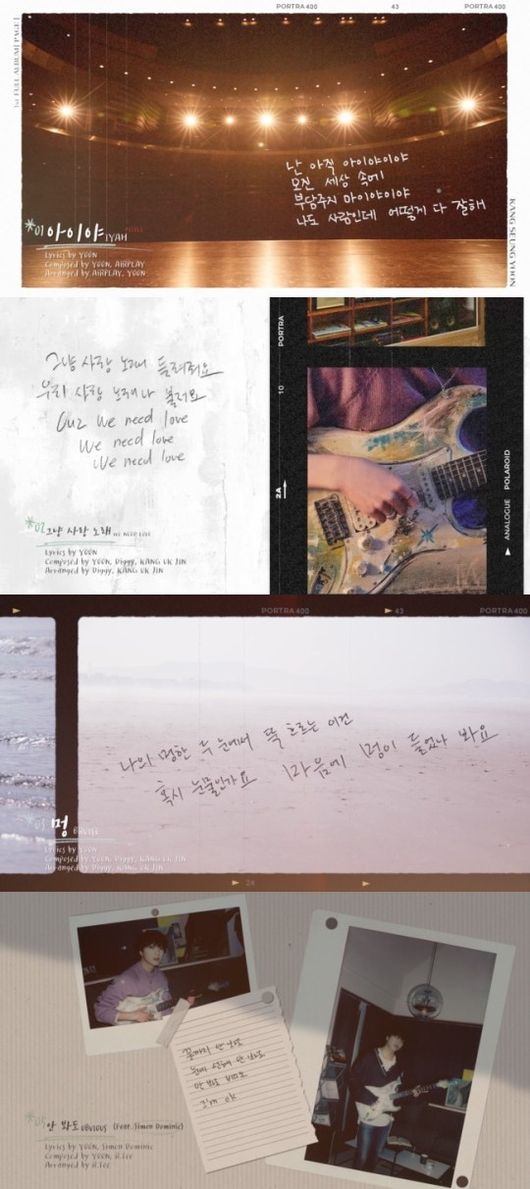 PORTRA 400 43 PORTRA 400
1st FULL ALBUM [PAGE]
난 아직 아이야이야
모진 세상 속에
부담주지 마이야이야
나도 사람인데 어떻게 다 잘해
KANG SEUNG YOON
*01 아이야 IYAH
Lyrics by YOON
Composed by YOON, AiRPLAY
Arranged by AiRPLAY, YOON
그냥 사랑 노래 들려줘요
우리 사랑 노래나 불러요
Cuz We need love
We need love
We need love
PORTRA
10
2A
ANALOGUE POLAROID
*02 그냥 사랑 노래 WE NEED LOVE
Lyrics by YOON
Composed by YOON, Diggy, KANG UK JIN
Arranged by Diggy, KANG UK JIN
PORTRA 400 43 PORTRA 400
나의 멍한 두 눈에서 뚝 흐르는 이건
혹시 눈물인가요 마음에 멍이 들었나 봐요
멍
Lyrics by YOON
Composed by YOON, Diggy, KANG UK JIN
Arranged by Diggy, KANG UK JIN
24
안 봐도 OBVIOUS (Feat. Simon Dominic)
Lyrics by YOON, Simon Dominic
Composed by YOON,
Arranged by